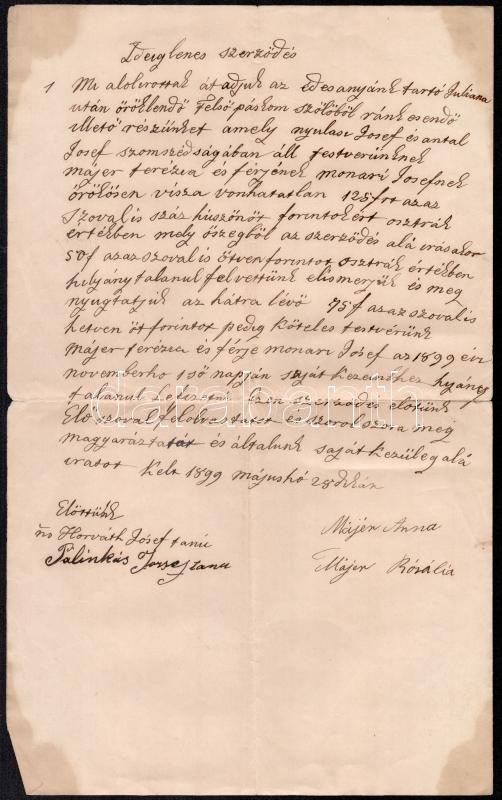 Ideiglenes szerződés
1 Mi alolirottak átadjuk az édesanyánk tartó Juliana
után öröklendő Felső páskom szőlőből ránk esendő
illető részünket amely nyulasi Josef és antal
Josef szomszédságában áll testvérünknek
májer terézia és férjének monari Josefnek
örökösen vissza vonhatatlan 125 frt azaz
szoval is száz huszönöt forintokért osztrák
értékben mely öszegből az szerződés alá irásakor
50 f azaz szoval is ötven forintot osztrák értékben
hiánytalanul felvettünk elismerjük és meg
nyugtatjuk az hátra lévő 75 f azaz szoval is
hetven öt forintot pedig köteles testvérünk
májer terézia és férje monari Josef az 1899 évi
novemberho 1ső napján saját kezeinkhez hyány
talanul lefizetni Ezen szerződés előttünk
Elő szoval felolvastatot és szorol szora meg
magyaráztatát és általunk saját kezüleg alá
iratot Kelt 1899 májushó 28dikán
Előttünk
Horváth Josef tanú
Pálinkás Jozsef tanu
Májer Anna
Májer Rózália
darabanth